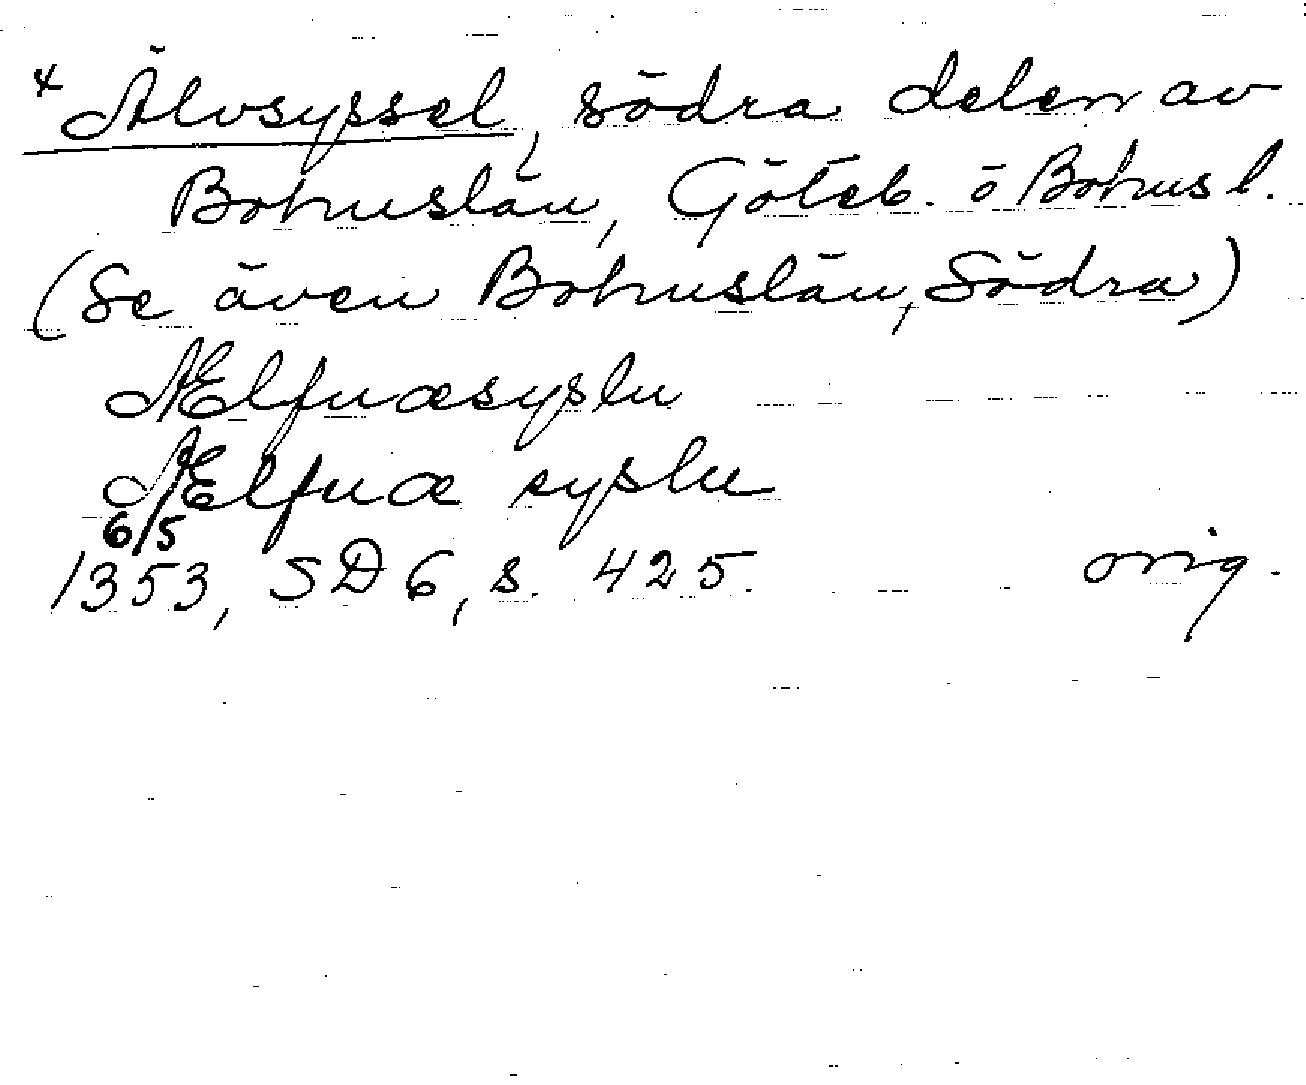 x Älvsyssel, södra delen av
Bohuslän, Göteb. o Bohus l.
(Se även Bohuslän, Södra)
Ælfuæsyslu
Ælfuæ syslu
6/5
1353, SD 6, s. 425. orig.